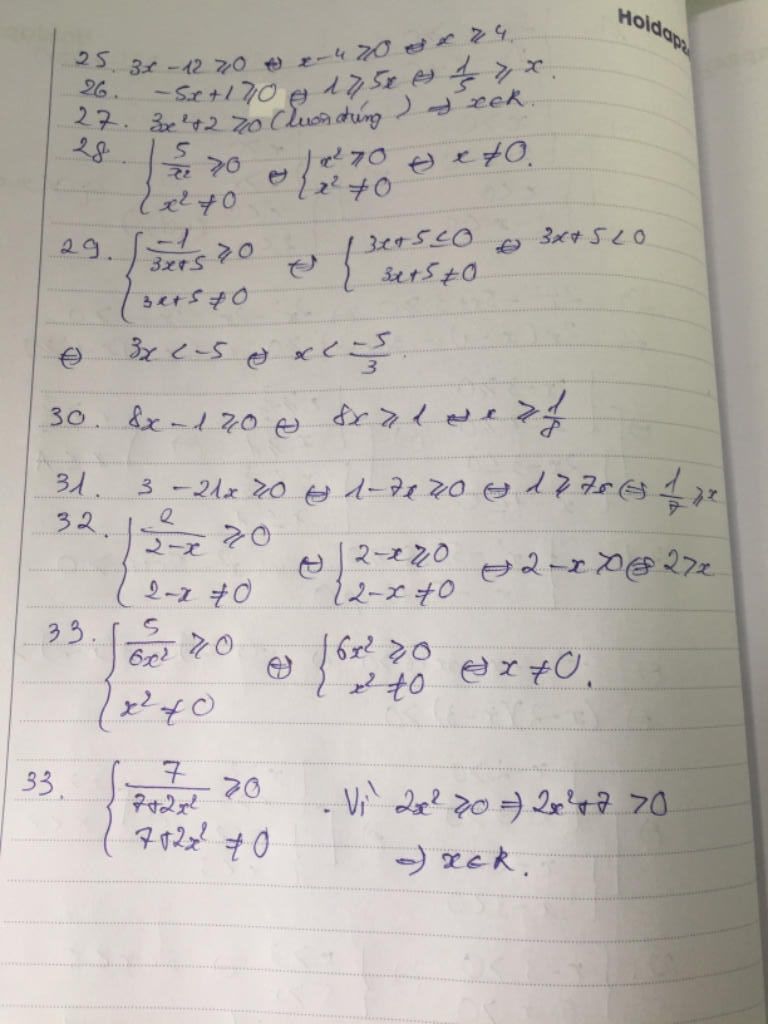 Hoidap2
25. 3x - 12 ⩾ 0 ⇔ x - 4 ⩾ 0 ⇔ x ⩾ 4.
26. -5x + 1 ⩾ 0 ⇔ 1 ⩾ 5x ⇔ 1/5 ⩾ x.
27. 3x² + 2 ⩾ 0 (luôn đúng) ⇒ x ∈ R.
28. { 5/x² ⩾ 0 ⇔ { x² ⩾ 0 ⇔ x ≠ 0.
x² ≠ 0 x² ≠ 0
29. { -1/(3x+5) ⩾ 0 ⇔ { 3x+5 ≤ 0 ⇔ 3x+5 < 0
3x+5 ≠ 0 3x+5 ≠ 0
⇔ 3x < -5 ⇔ x < -5/3.
30. 8x - 1 ⩾ 0 ⇔ 8x ⩾ 1 ⇔ x ⩾ 1/8
31. 3 - 21x ⩾ 0 ⇔ 1 - 7x ⩾ 0 ⇔ 1 ⩾ 7x ⇔ 1/7 ⩾ x
32. { 2/(2-x) ⩾ 0 ⇔ { 2-x ⩾ 0 ⇔ 2-x > 0 ⇔ 2 > x
2-x ≠ 0 2-x ≠ 0
33. { 5/6x² ⩾ 0 ⇔ { 6x² ⩾ 0 ⇔ x ≠ 0.
x² ≠ 0 x² ≠ 0
33. { 7/(7+2x²) ⩾ 0 . Vì 2x² ⩾ 0 ⇒ 2x²+7 > 0
7+2x² ≠ 0
⇒ x ∈ R.